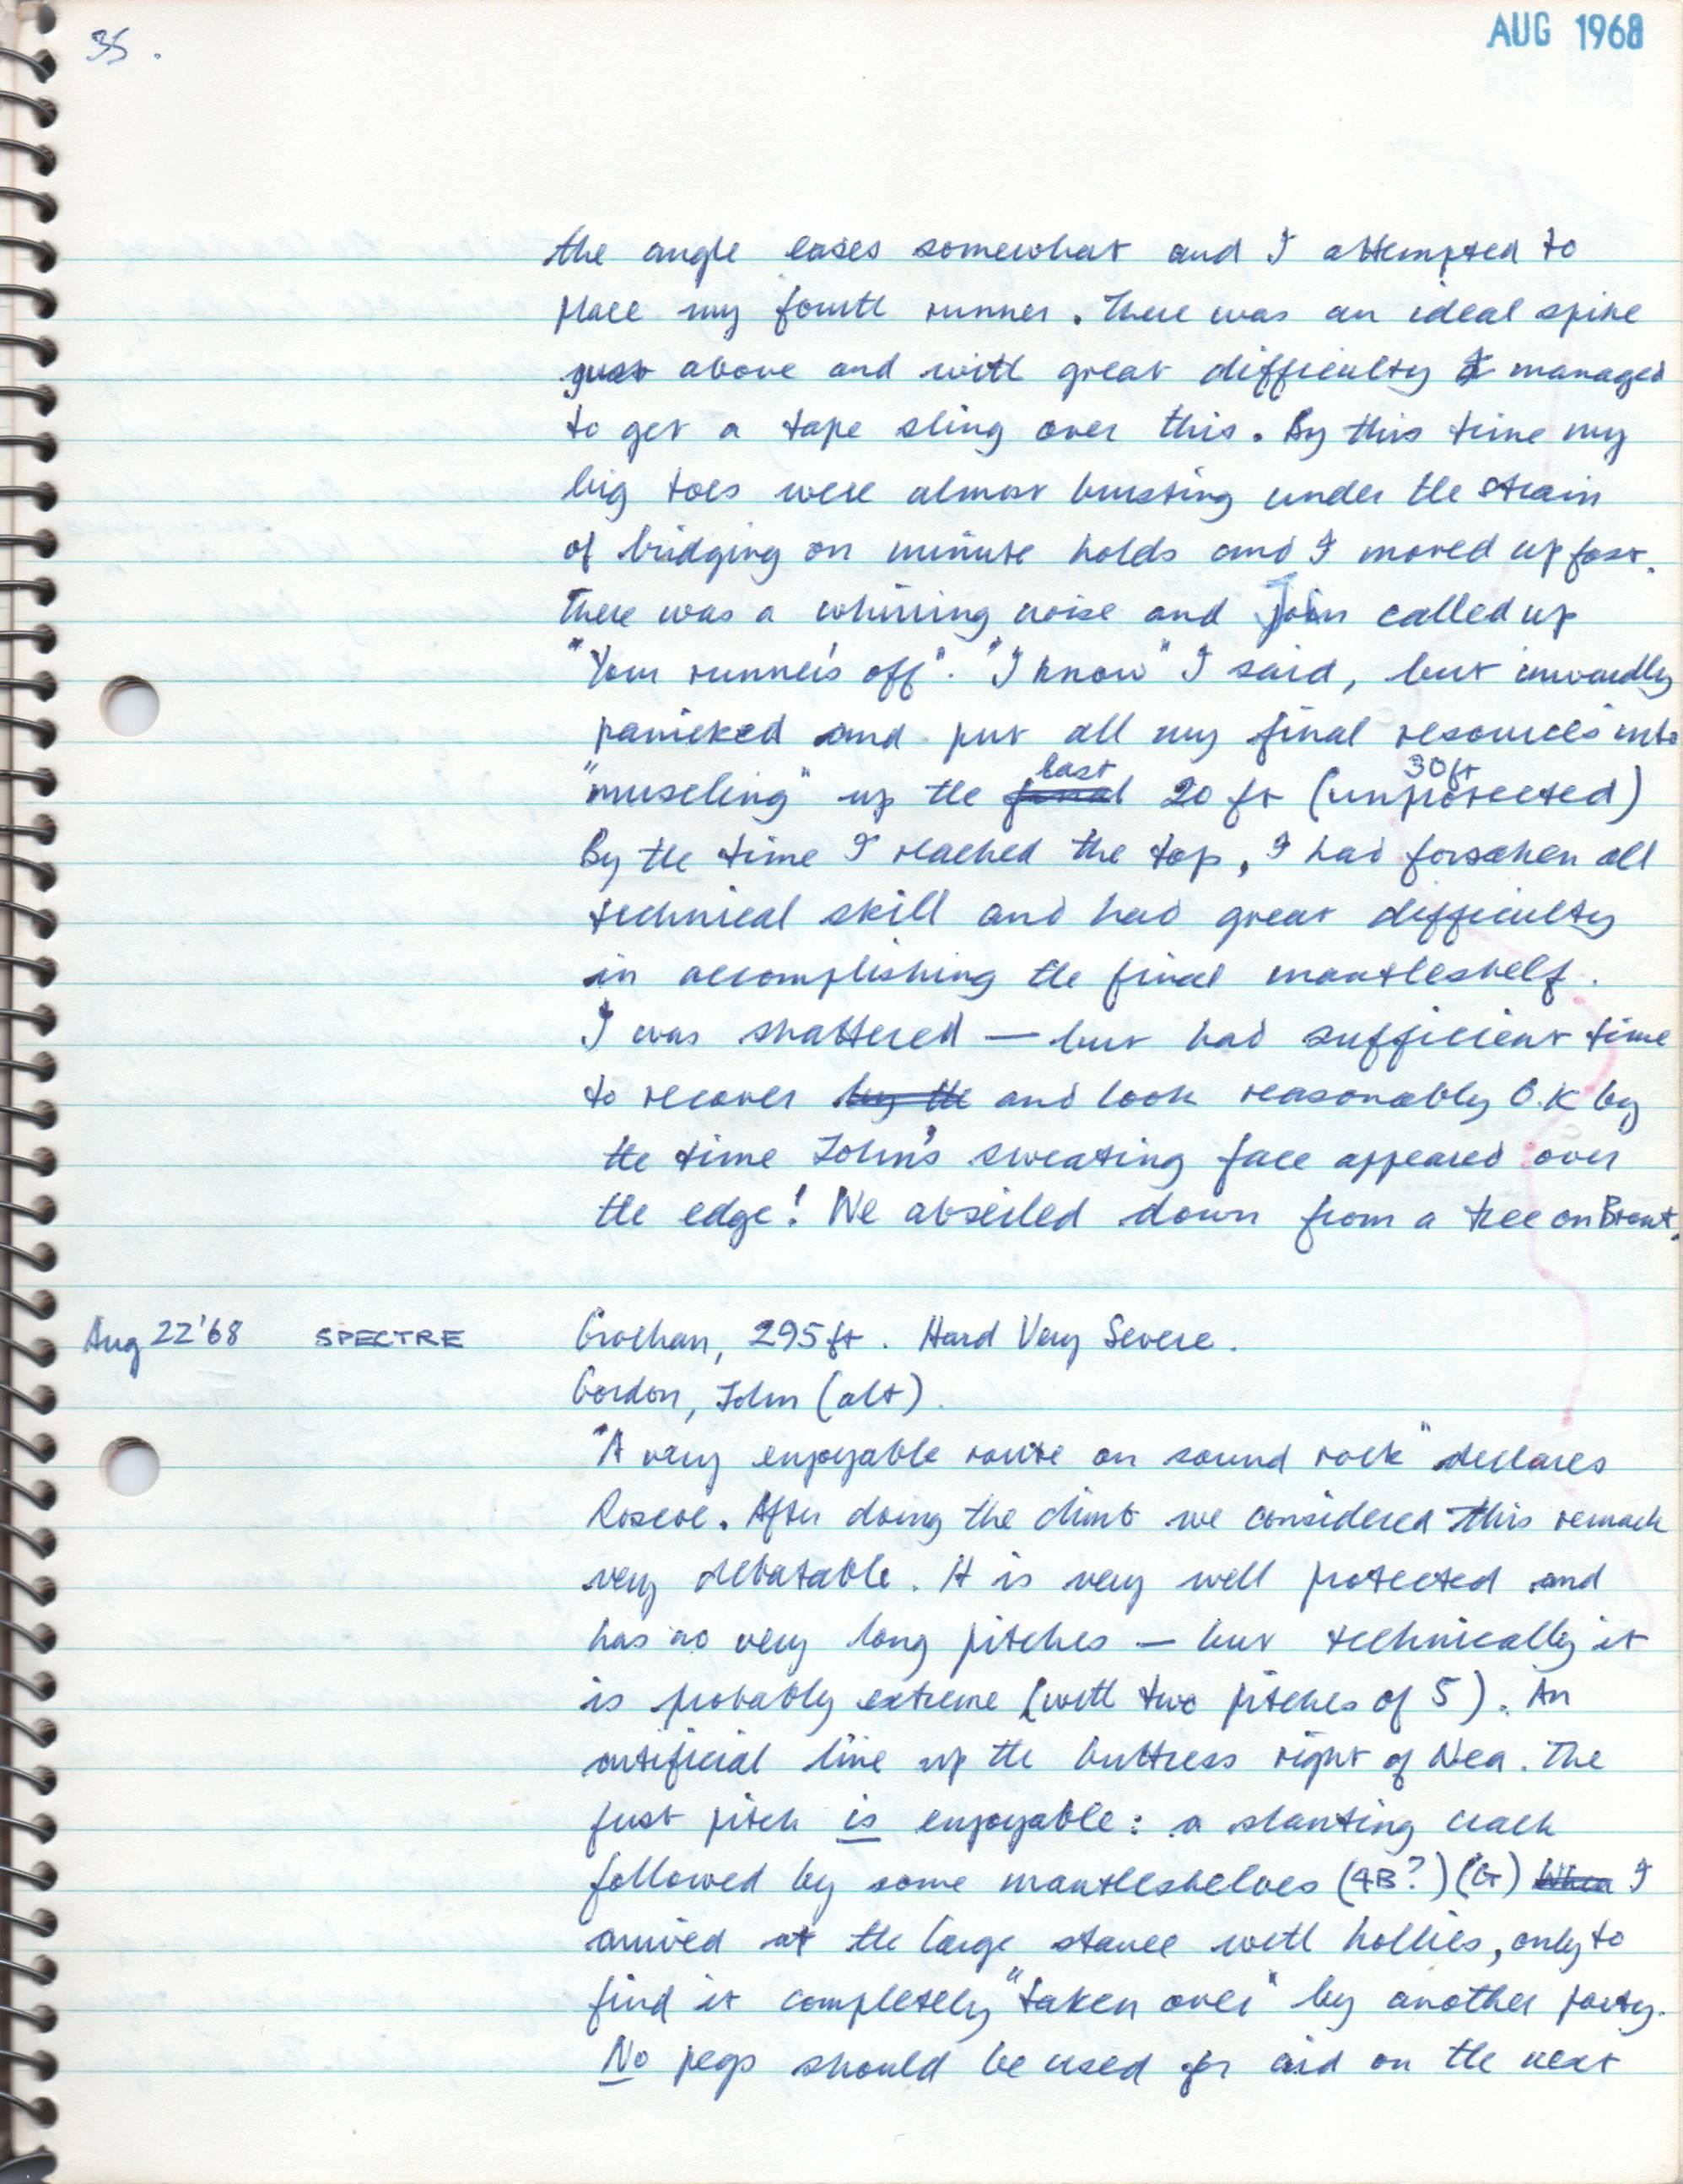 35.
AUG 1968
the angle eases somewhat and I attempted to
place my fourth runner. There was an ideal spike
just above and with great difficulty I managed
to get a tape sling over this. By this time my
big toes were almost bursting under the strain
of bridging on minute holds and I moved up fast.
There was a whirring noise and John called up
"Your runner's off". "I know" I said, but inwardly
panicked and put all my final resources into
"muscling" up the final last 20 ft (unprotected) 30ft
By the time I reached the top, I had forsaken all
technical skill and had great difficulty
in accomplishing the final mantleshelf.
I was shattered — but had sufficient time
to recover by the and look reasonably O.K by
the time John's sweating face appeared over
the edge! We abseiled down from a tree on Brant.
Aug 22'68 SPECTRE Grochan, 295ft. Hard Very Severe.
Gordon, John (alt).
"A very enjoyable route on sound rock" declares
Roscoe. After doing the climb we considered this remark
very debatable. It is very well protected and
has no very long pitches — but technically it
is probably extreme (with two pitches of 5). An
artificial line up the buttress right of Nea. The
first pitch is enjoyable: a slanting crack
followed by some mantleshelves (4B?) (G) When I
arrived at the large stance with hollies, only to
find it completely "taken over" by another party.
No pegs should be used for aid on the next